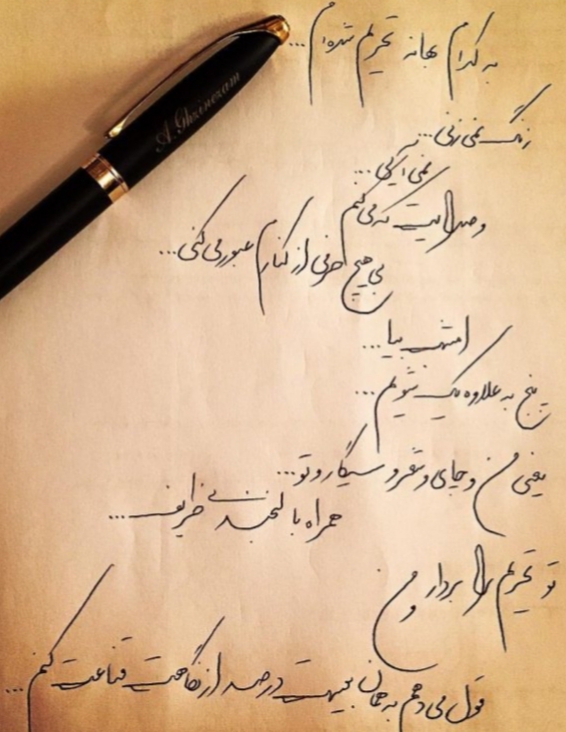 به کدام بهانه تحریم شده‌ام...
زنگ نمی زنی...
نمی آیی...
و صدایت که می کنم
بی هیچ حرفی از کنارم عبور می کنی...
امشب بیا...
پنج به علاوه یک شویم...
یعنی من و چای و شعر و سیگار و تو...
همراه با لبخندی ظریف...
تو تحریم را بردار و من
قول می دهم به همان بیست درصد از نگاهت قناعت کنم...
A.Ghzinezam